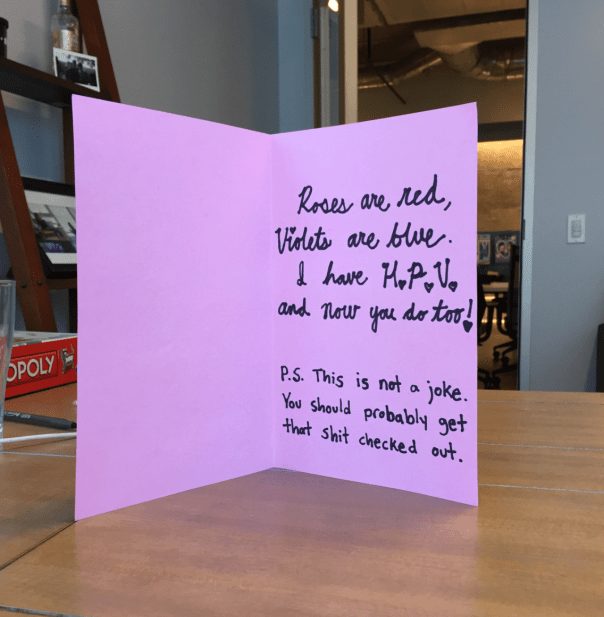 Roses are red,
Violets are blue.
I have H.P.V.
and now you do too!
P.S. This is not a joke.
You should probably get
that shit checked out.
OPOLY